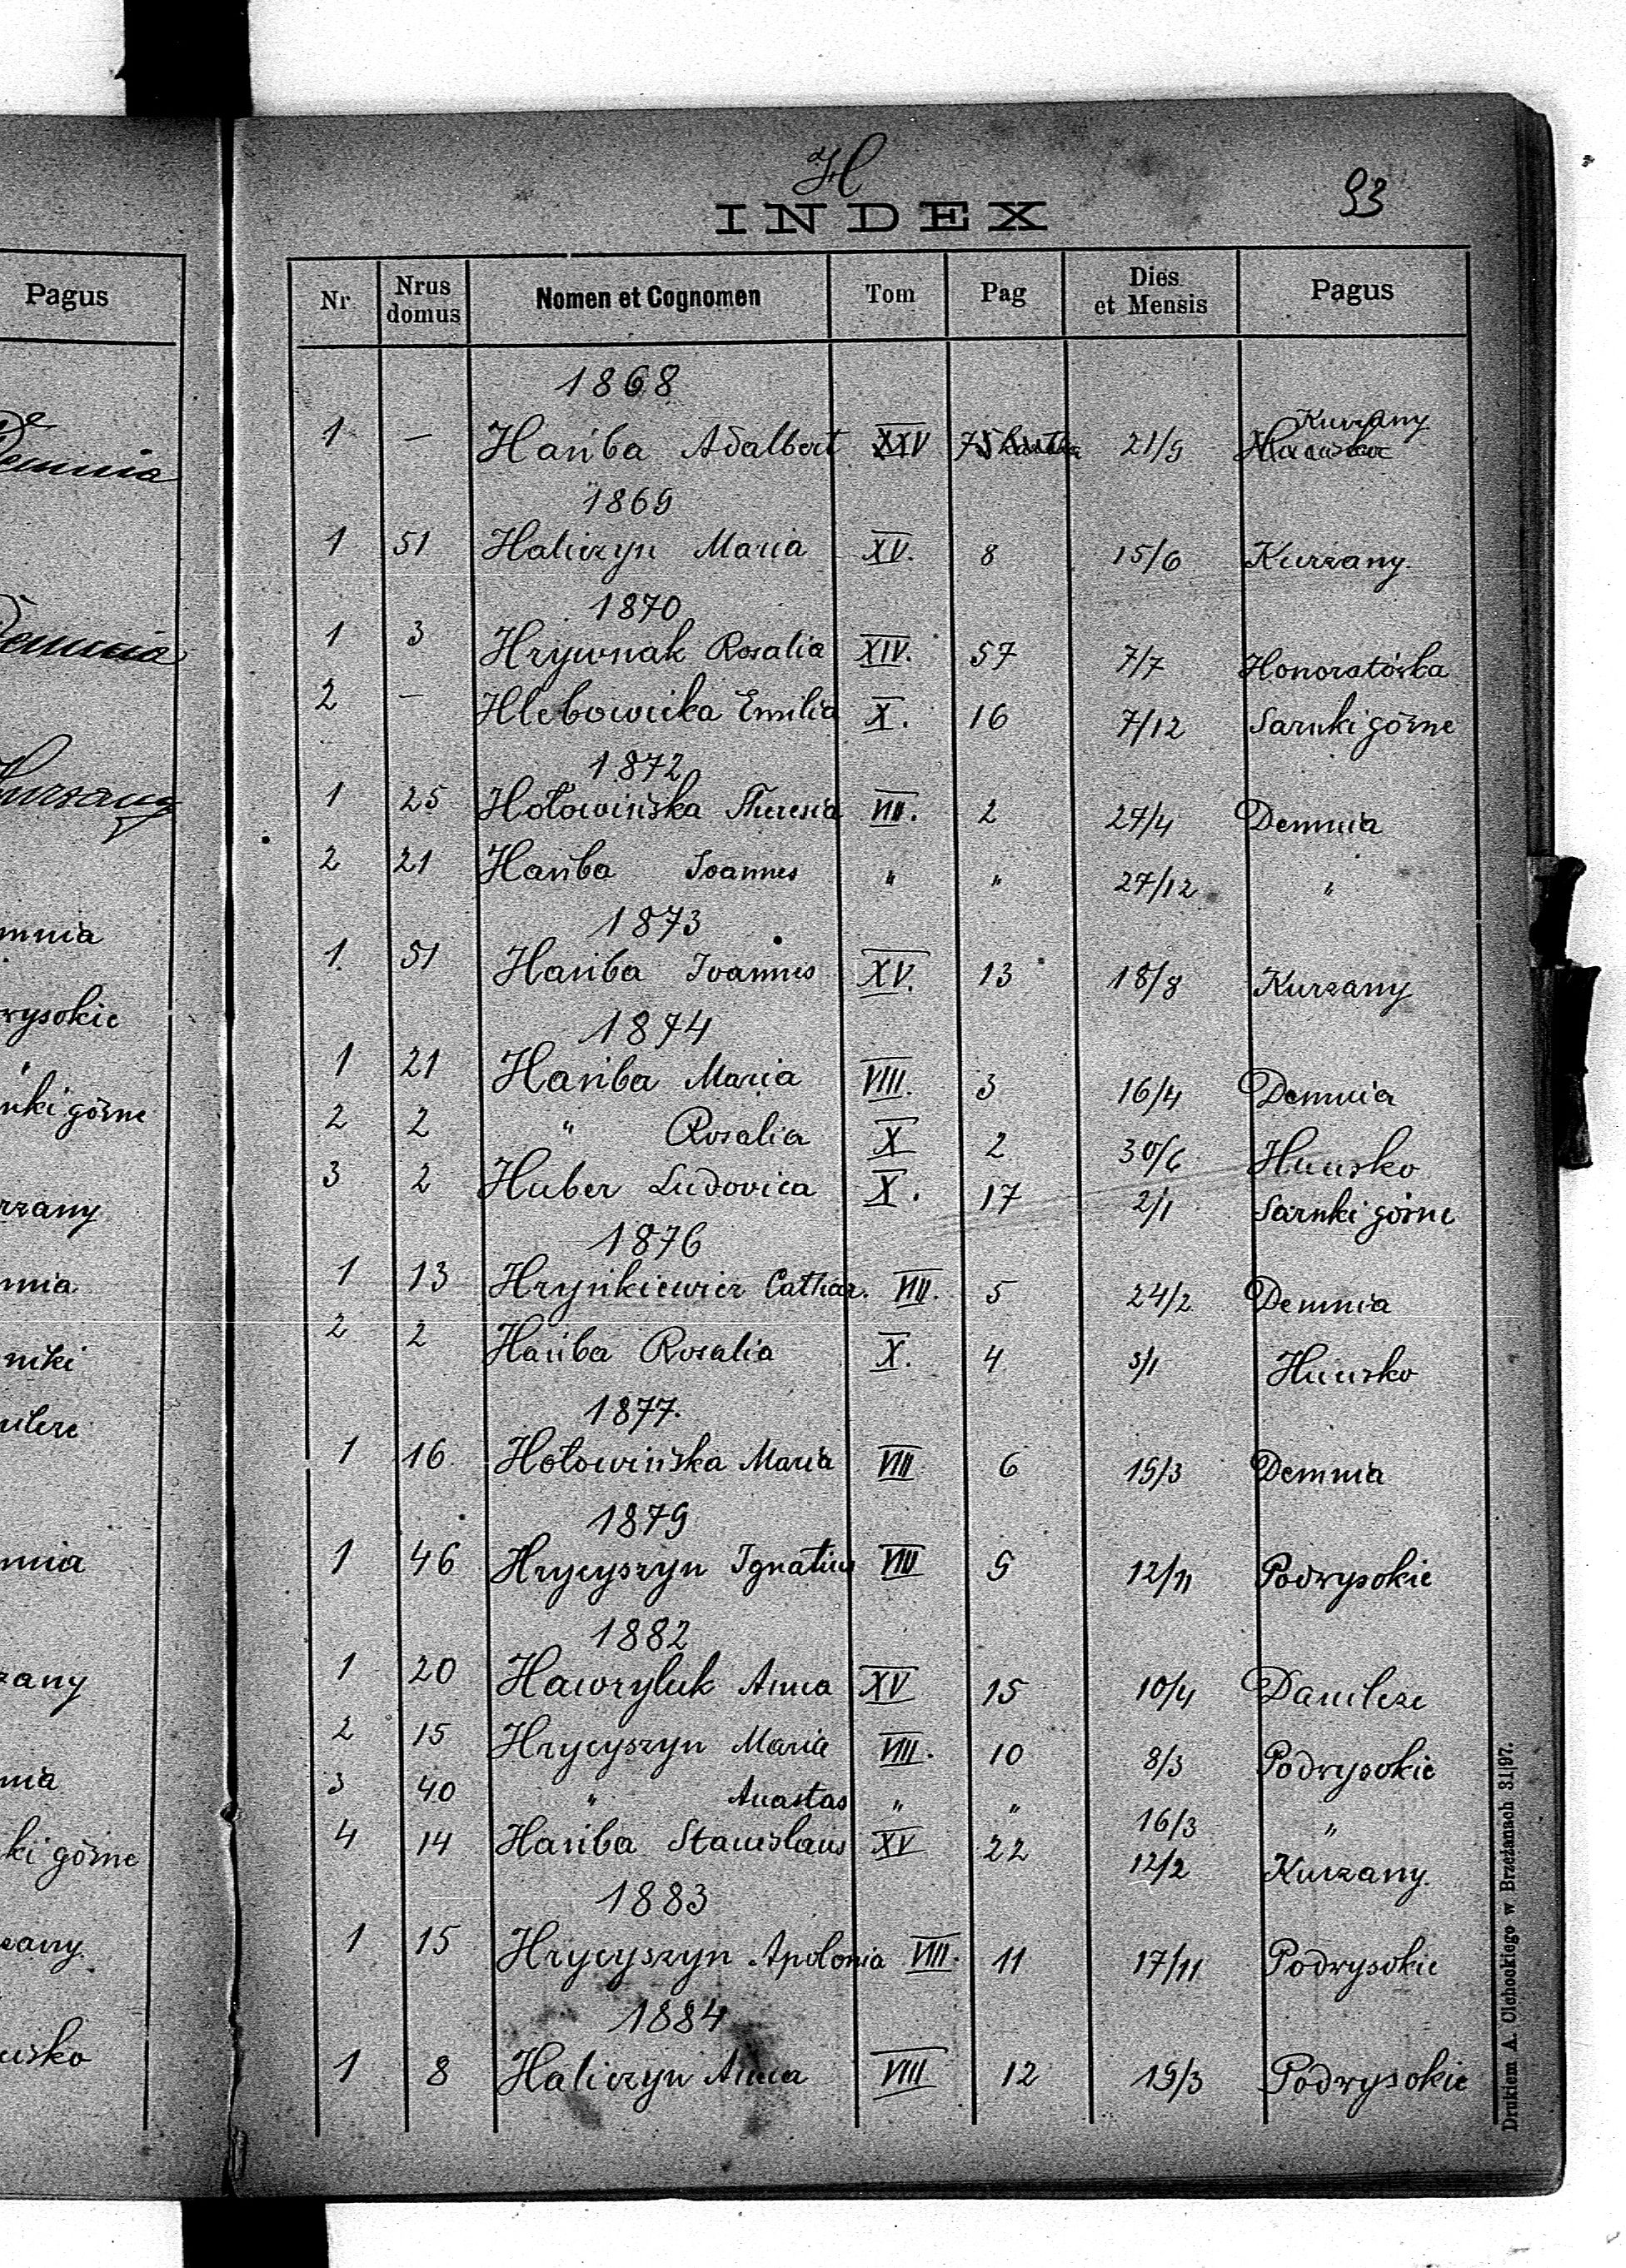 Pagus
De
Demnia
Demnia
Kurzany
mnia
wysokie
"
nki górne
rzany
mnia
niki
ilcze
mnia
zany
nia
ki górne
zany
usko
H
93
INDEX
Nr Nrus domus Nomen et Cognomen Tom Pag Dies et Mensis Pagus
1868
Kurzany
1 — Hańba Adalbert XXV 75 21/9
1869
1 51 Haliczyn Maria XV. 8 15/6 Kurzany
1870
1 3 Hrywnak Rosalia XIV. 57 7/7 Honoratówka
2 — Hlebowicka Emilia X. 16 7/12 Sarnki górne
1872
1 25 Hołowińska Theresia VIII. 2 27/4 Demnia
2 21 Hańba Joannes " " 27/12 "
1873
1 51 Hańba Joannes XV. 13 18/8 Kurzany
1874
1 21 Hańba Maria VIII. 3 16/4 Demnia
2 2 " Rosalia X 2 30/6 Hucisko
3 2 Huber Ludovica X. 17 2/1 Sarnki górne
1876
1 13 Hryńkiewicz Cathar. VIII. 5 24/2 Demnia
2 2 Hańba Rosalia X. 4 5/1 Hucisko
1877.
1 16 Hołowińska Maria VIII 6 15/3 Demnia
1879
1 46 Hrycyszyn Ignatius VIII 9 12/11 Podwysokie
1882
1 20 Hawryluk Anna XV 15 10/4 Danilcze
2 15 Hrycyszyn Maria VIII. 10 8/3 Podwysokie
3 40 " Anastas " " 16/3 "
4 14 Hańba Stanislaus XV 22 12/2 Kurzany
1883
1 15 Hrycyszyn Apolonia VIII. 11 17/11 Podwysokie
1884
1 8 Haliczyn Anna VIII 12 19/3 Podwysokie
Drukiem A. Olchockiego w Brzeżanach 31|97.